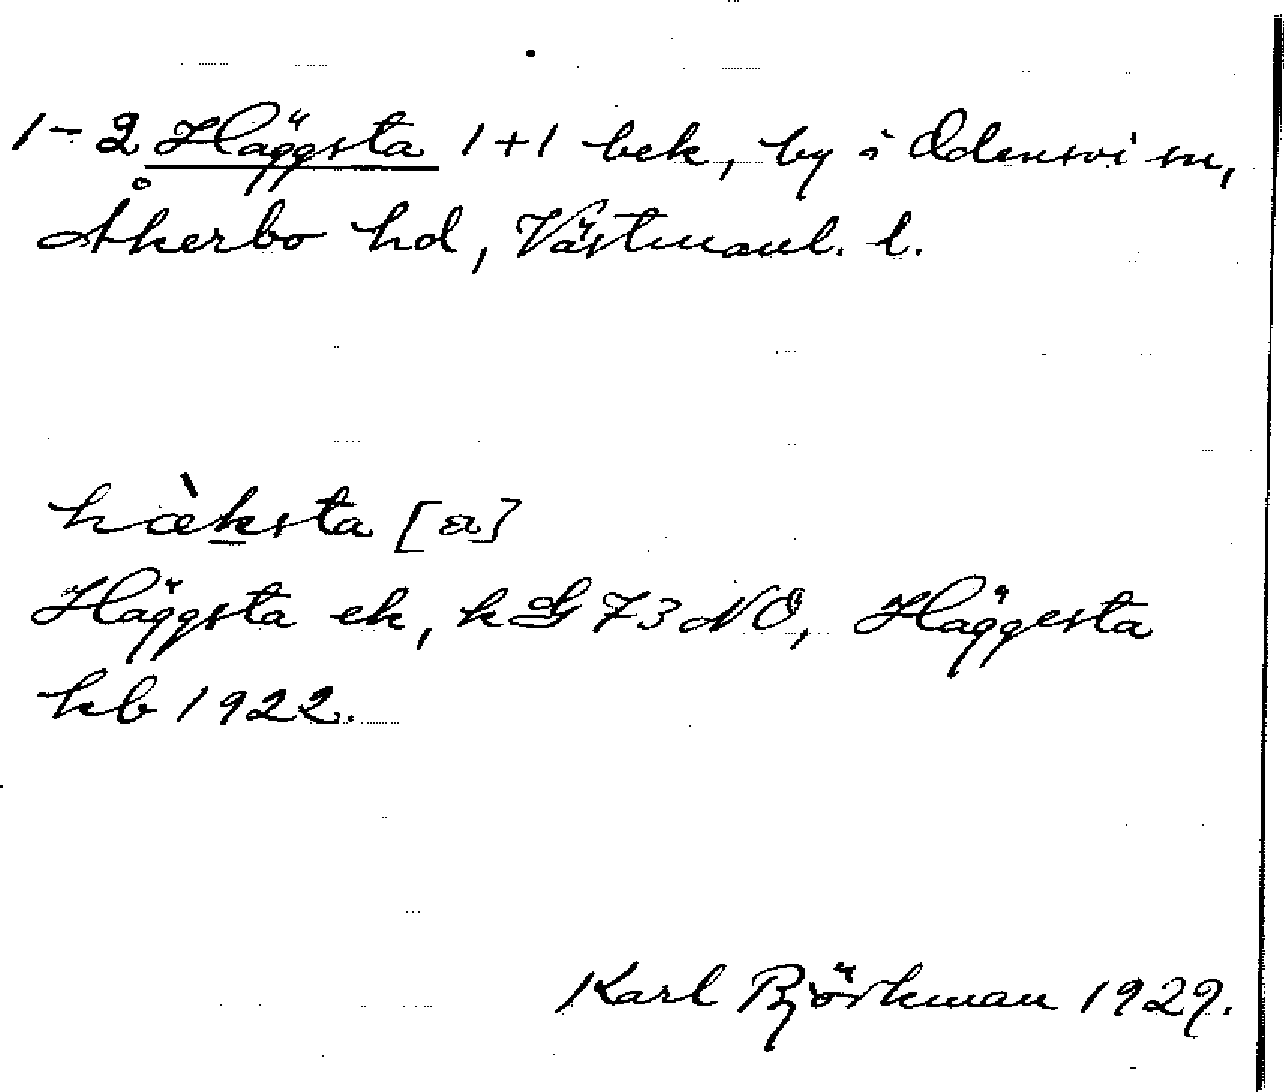 1-2 Häggsta 1+1 bek, by i Odensvi sn,
Åkerbo hd, Västmanl. l.
hæ̀ksta [a]
Häggsta ek, kG 73 NO, Häggesta
kb 1922.
Karl Björkman 1929.